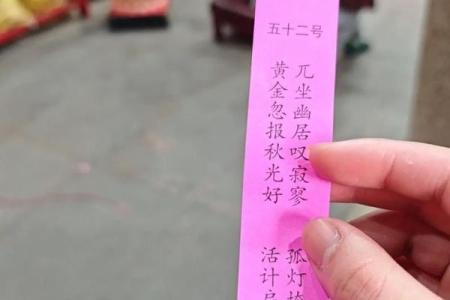 五十二号
兀坐幽居叹寂寥
孤灯掩
黄金忽报秋光好
活计